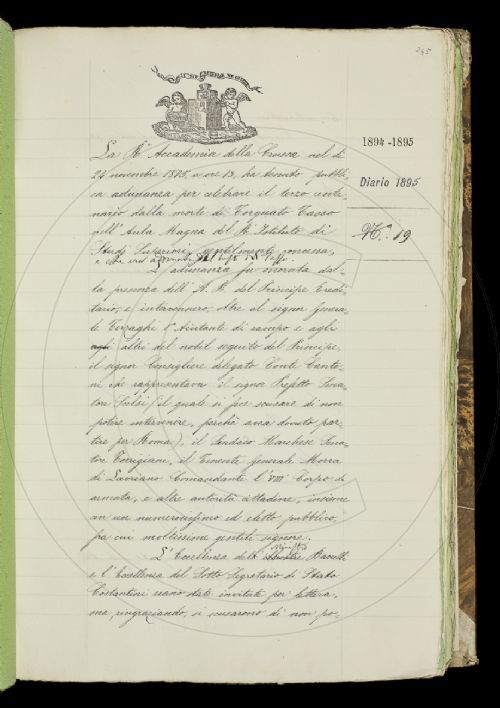 245
1894-1895
Diario 1895
N.° 19
La R. Accademia della Crusca nel dì
24 novembre 1895, a ore 13, ha tenuto pubbli-
ca adunanza per celebrare il terzo cente-
nario dalla morte di Torquato Tasso
nell'Aula Magna del R. Istituto di
Studj Superiori, gentilmente concessa,
L'adunanza fu onorata dal-
la presenza dell'A. R. del Principe Eredi-
tario, e intervennero, oltre al signor Genera-
le Terzaghi 1° Aiutante di campo e agli
agli altri del nobil seguito del Principe,
il signor Consigliere delegato Conte Canto-
ni che rappresentava il signor Prefetto Sena-
tore (il quale si fece scusare di non
potere intervenire, perchè avea dovuto par-
tire per Roma), il Sindaco Marchese Sena-
tore Torrigiani, il Tenente Generale Morra
di Lavriano Comandante l'VIII Corpo di
armata, e altre autorità cittadine, insieme
con un numerosissimo ed eletto pubblico,
fra cui moltissime gentili signore.
L'Eccellenza del Ministro Baccelli
e l'Eccellenza del Sotto Segretario di Stato
Costantini erano state invitate per lettera,
ma, ringraziando, si scusarono di non po-